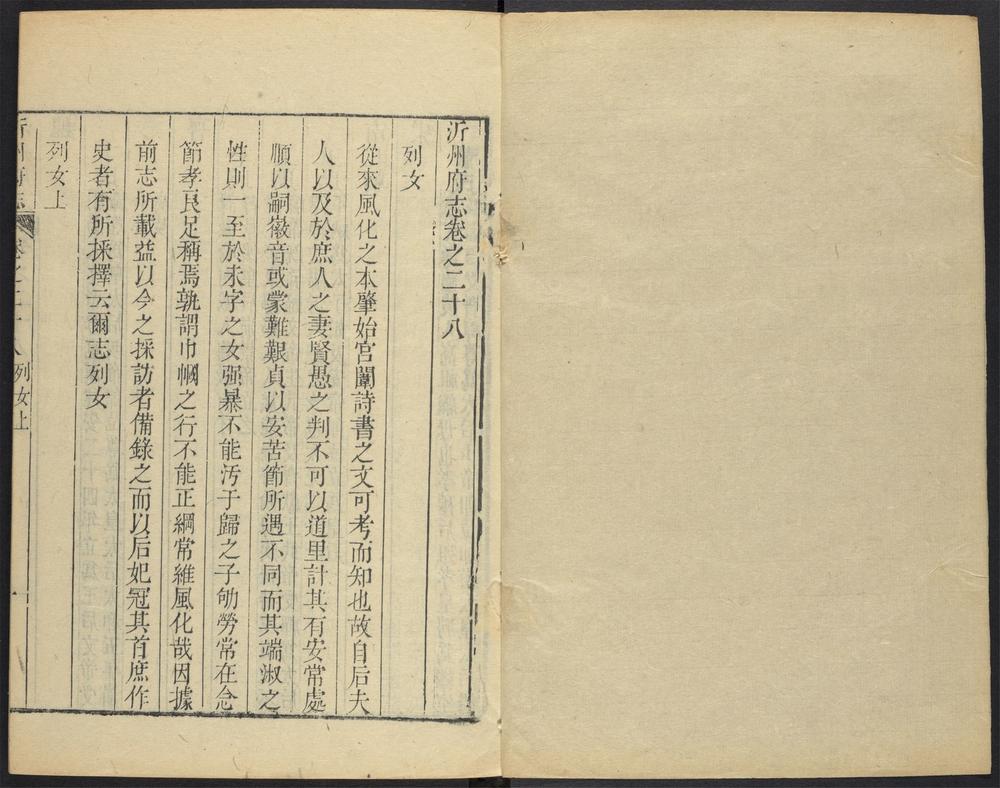 沂州府志卷之二十八
列女
從來風化之本肇始宮闈詩書之文可考而知也故自后夫
人以及於庶人之妻賢愚之判不可以道里計其有安常處
順以嗣徽音或蒙難艱貞以安苦節所遇不同而其端淑之
性則一至於未字之女强暴不能汚于歸之子劬勞常在念
節孝良足稱焉孰謂巾幗之行不能正綱常維風化哉因據
前志所載益以今之採訪者備錄之而以后妃冠其首庶作
史者有所採擇云爾志列女
列女上
沂州府志 卷之二十八 列女上 一